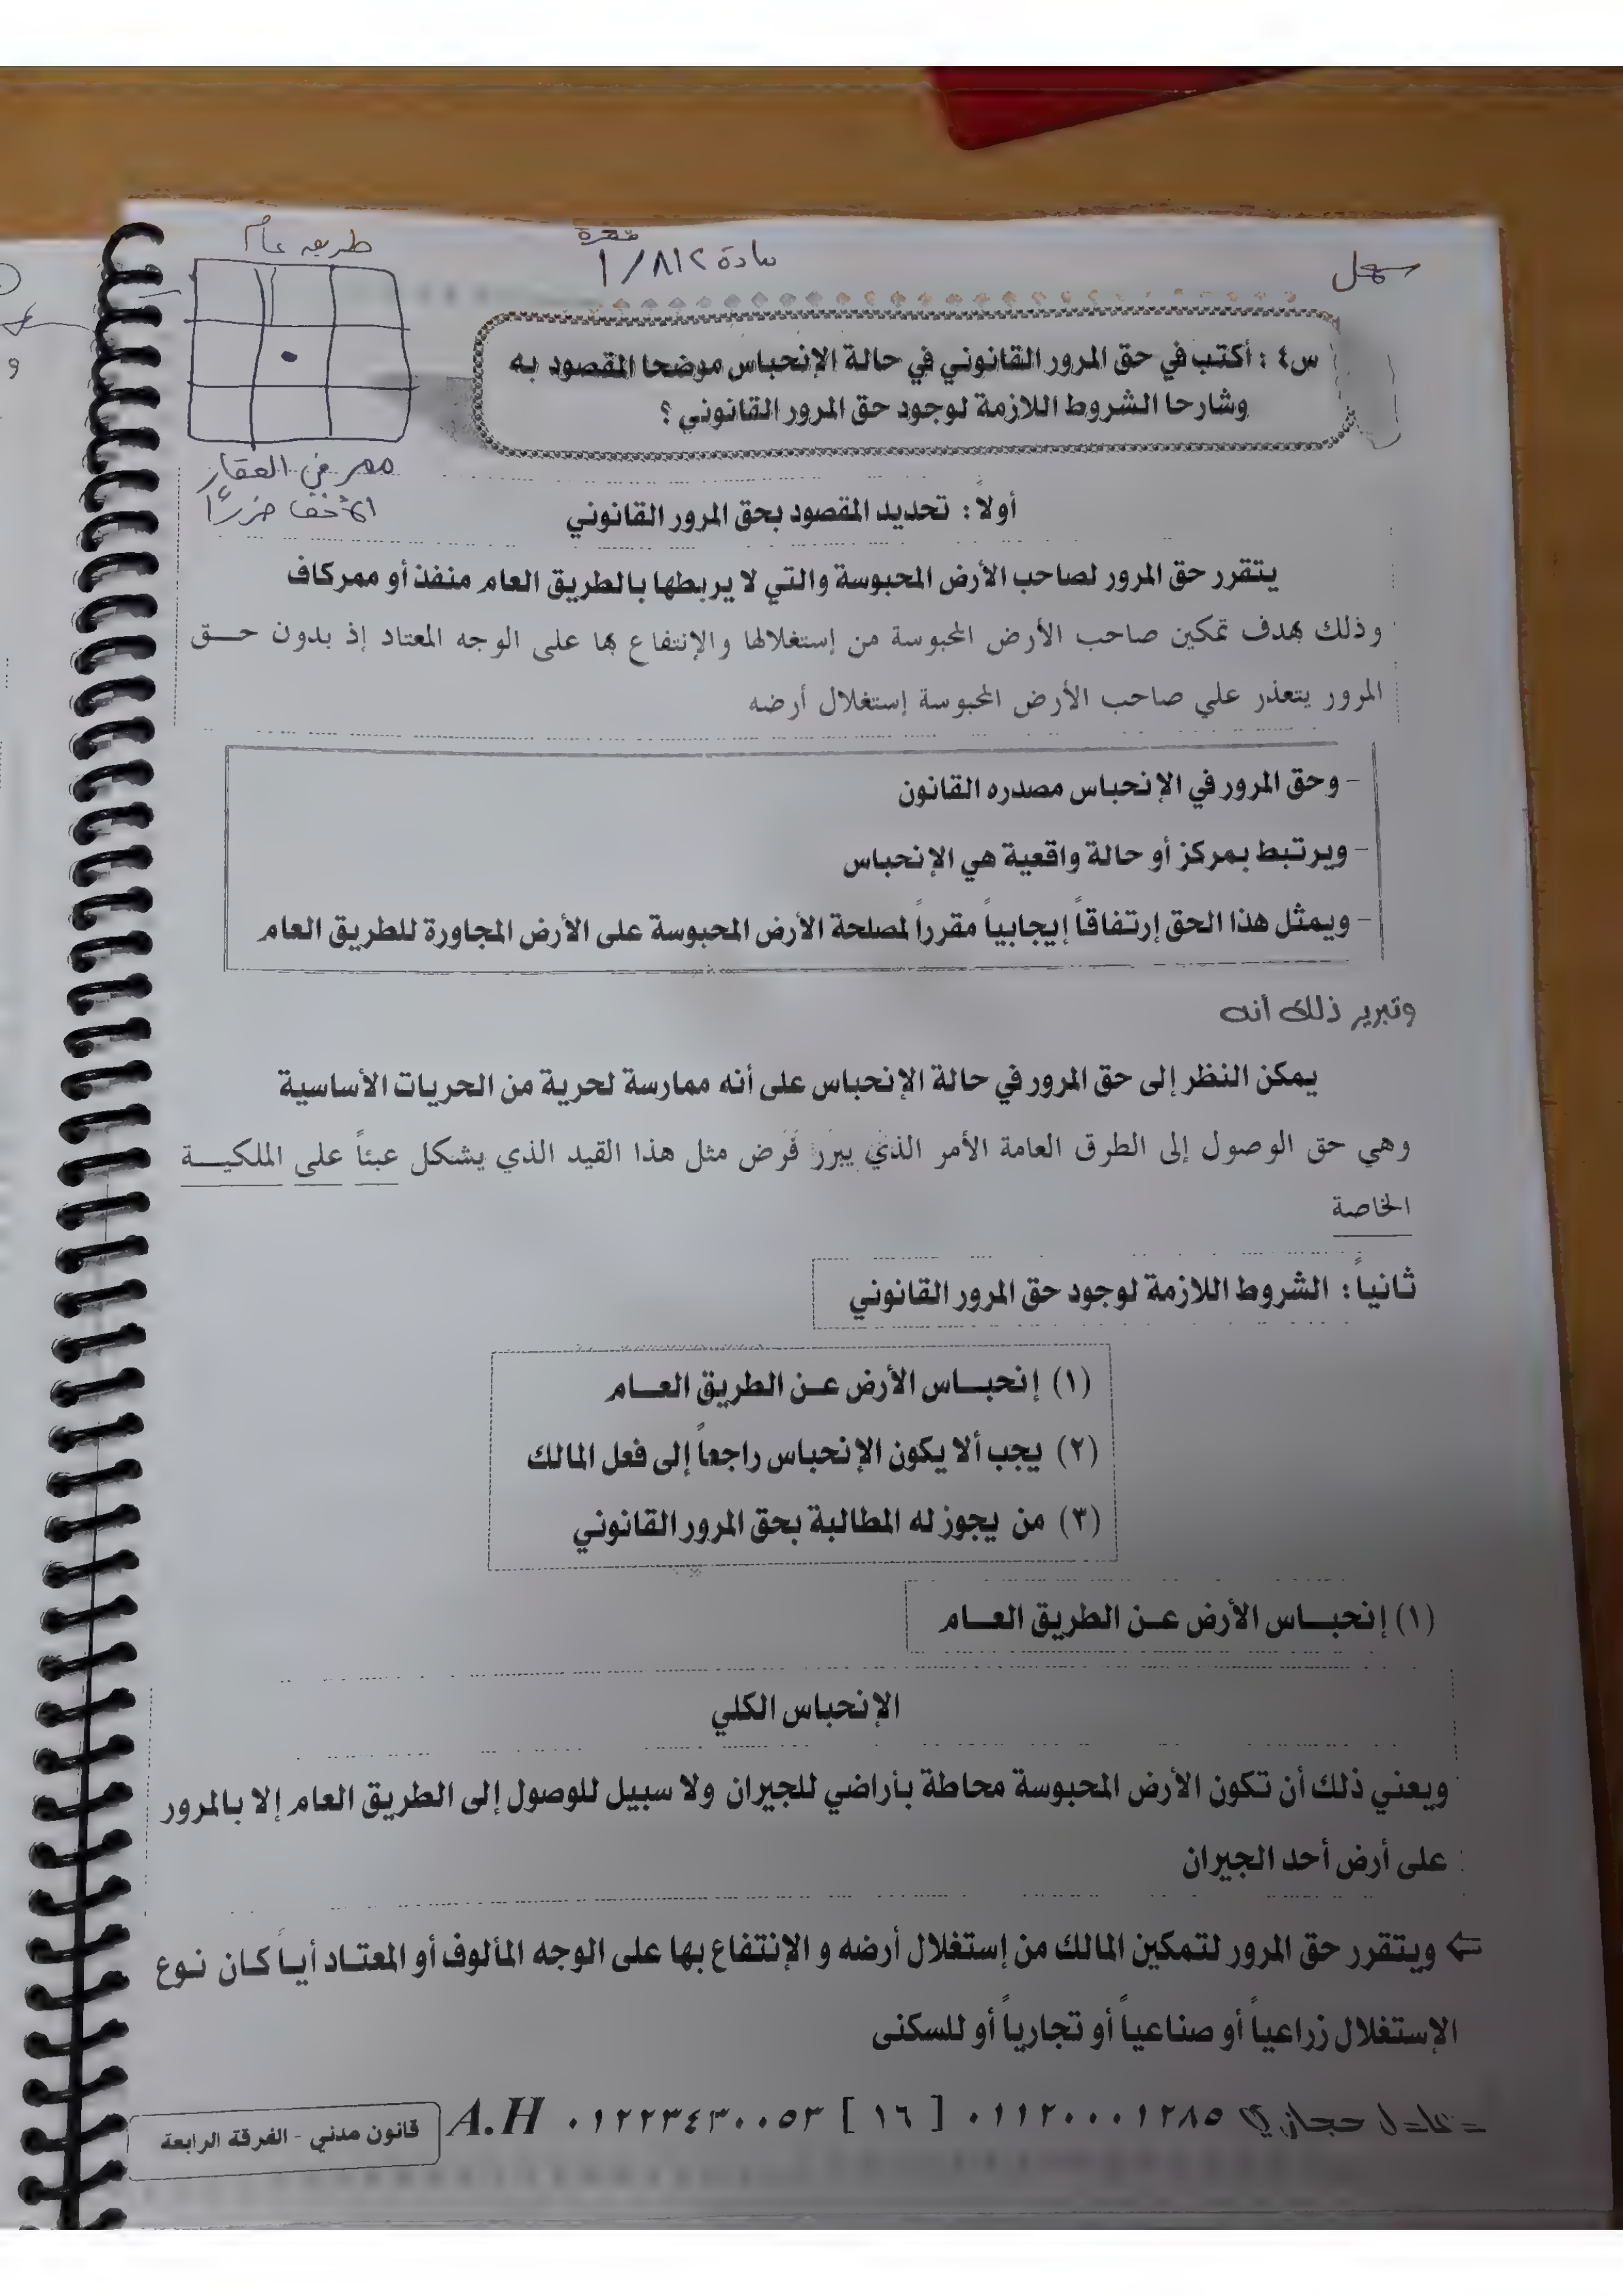 سهل
مادة ٨١٢/ ١
فقرة
طريق عام
س٤ : أكتب في حق المرور القانوني في حالة الإنحباس موضحا المقصود به
وشارحا الشروط اللازمة لوجود حق المرور القانوني ؟
ممر في العقار
الأخف ضررًا
أولاً : تحديد المقصود بحق المرور القانوني
يتقرر حق المرور لصاحب الأرض المحبوسة والتي لا يربطها بالطريق العام منفذ أو ممر كاف
وذلك بهدف تمكين صاحب الأرض المحبوسة من إستغلالها والإنتفاع بها على الوجه المعتاد إذ بدون حـــق
المرور يتعذر علي صاحب الأرض المحبوسة إستغلال أرضه
- وحق المرور في الإنحباس مصدره القانون
- ويرتبط بمركز أو حالة واقعية هي الإنحباس
- ويمثل هذا الحق إرتفاقاً إيجابياً مقرراً لمصلحة الأرض المحبوسة على الأرض المجاورة للطريق العام
وتبرير ذلك أنه
يمكن النظر إلى حق المرور في حالة الإنحباس على أنه ممارسة لحرية من الحريات الأساسية
وهي حق الوصول إلى الطرق العامة الأمر الذي يبرر فرض مثل هذا القيد الذي يشكل عبئاً على الملكيـــة
الخاصة
ثانياً : الشروط اللازمة لوجود حق المرور القانوني
(١) إنحبـــاس الأرض عـن الطريق العـــام
(٢) يجب ألا يكون الإنحباس راجعاً إلى فعل المالك
(٣) من يجوز له المطالبة بحق المرور القانوني
(١) إنحبـــاس الأرض عـن الطريق العـــام
الإنحباس الكلي
ويعني ذلك أن تكون الأرض المحبوسة محاطة بأراضي للجيران ولا سبيل للوصول إلى الطريق العام إلا بالمرور
على أرض أحد الجيران
⇐ ويتقرر حق المرور لتمكين المالك من إستغلال أرضه و الإنتفاع بها على الوجه المألوف أو المعتـاد أيـاً كـان نـوع
الإستغلال زراعياً أو صناعياً أو تجارياً أو للسكنى
عادل حجازي ٠١١٢٠٠٠١٢٨٥ [ ١٦ ] ٠١٢٢٣٤٣٠٠٥٣ A.H
قانون مدني - الفرقة الرابعة